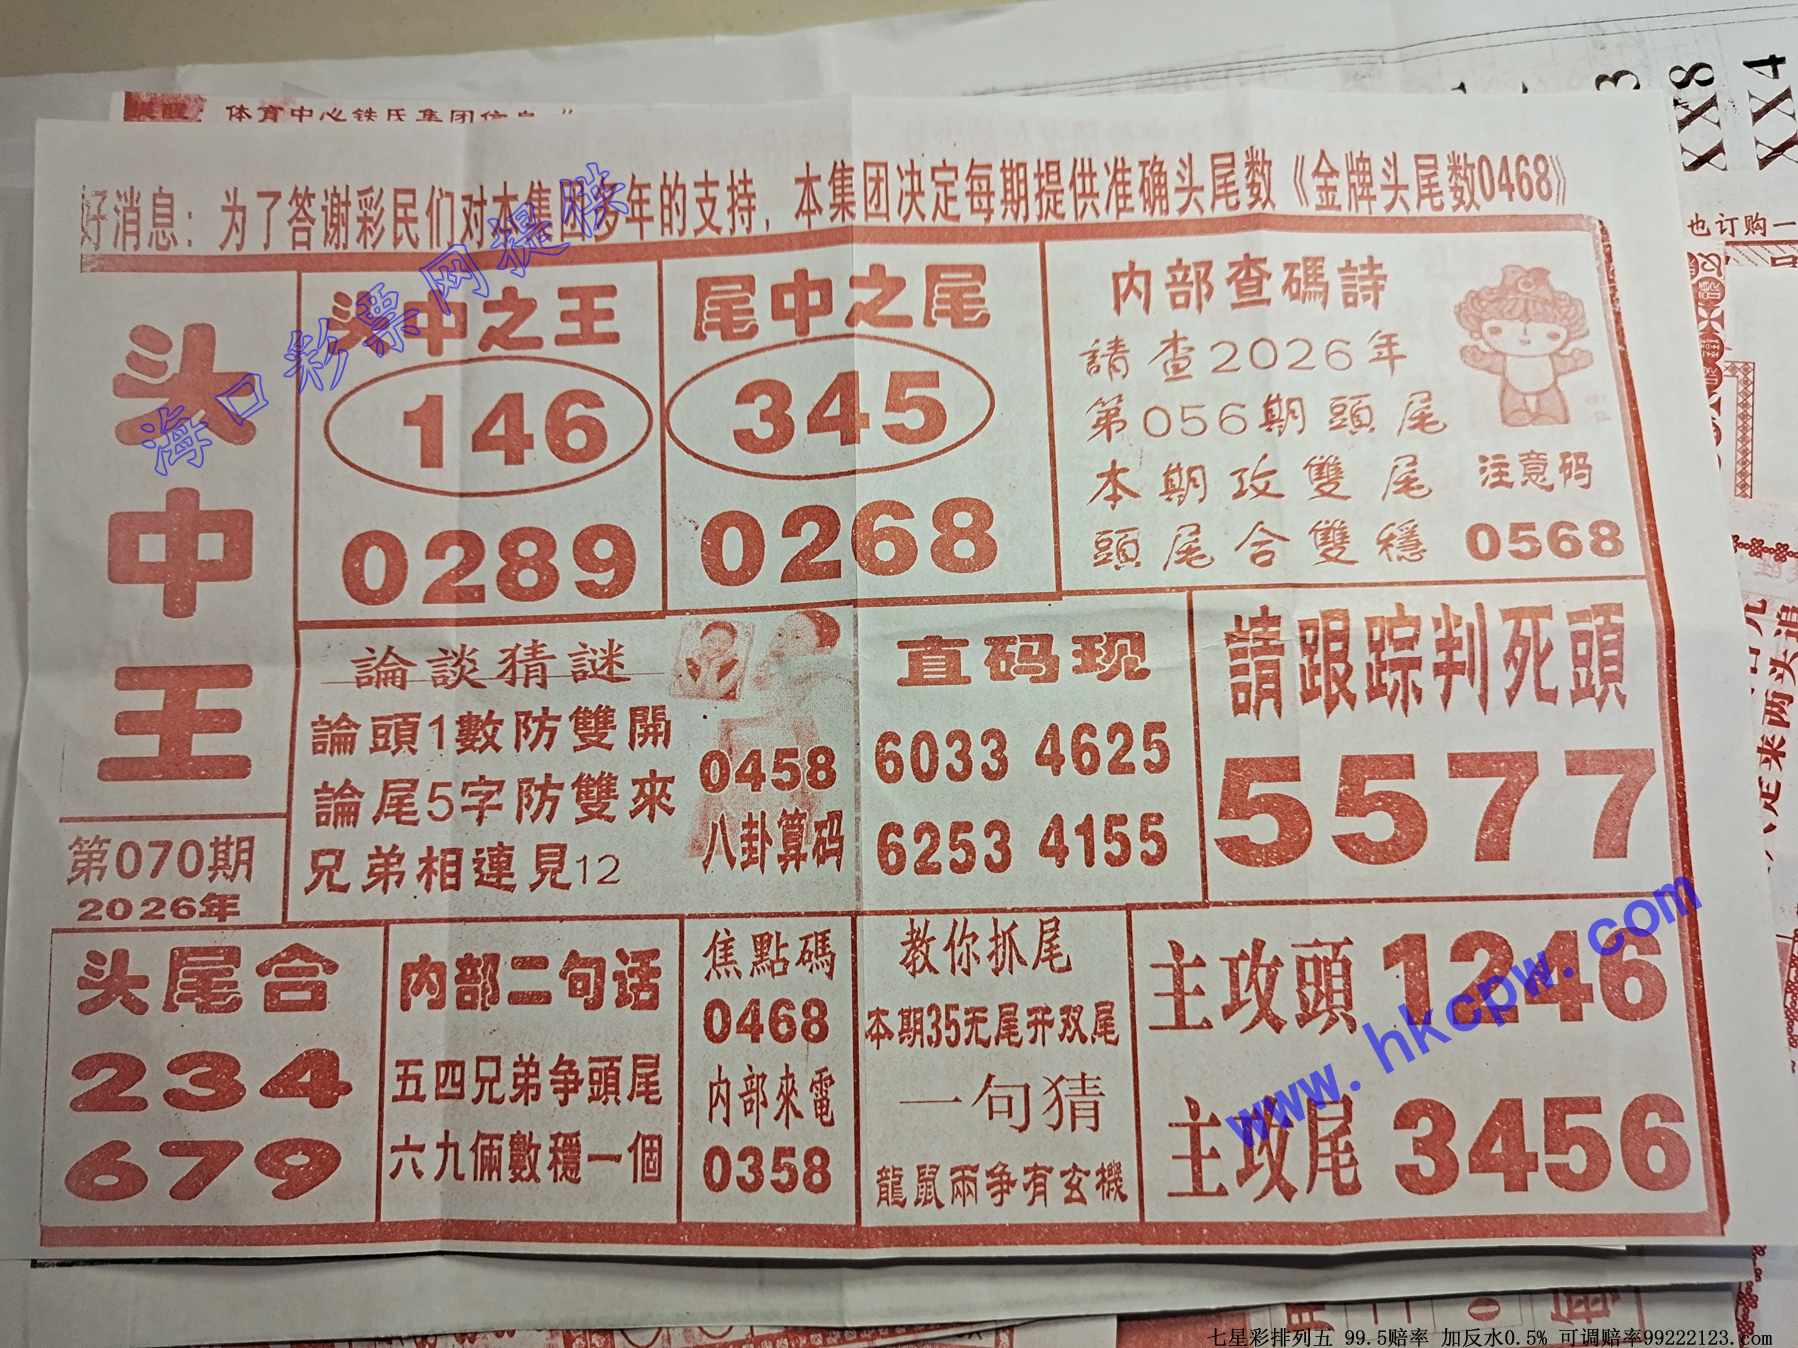 体育中心铁氏集团信息
好消息：为了答谢彩民们对本集团多年的支持，本集团决定每期提供准确头尾数《金牌头尾数0468》
海口彩票网提供
头中王
第070期
2026年
头中之王
146
0289
尾中之尾
345
0268
内部查碼詩
請查2026年
第056期頭尾
本期攻雙尾
頭尾合雙穩
注意码
0568
論談猜謎
論頭1數防雙開
論尾5字防雙來
兄弟相連見12
0458
八卦算码
直码现
6033 4625
6253 4155
請跟踪判死頭
5577
头尾合
234
679
内部二句话
五四兄弟争頭尾
六九倆數穩一個
焦點碼
0468
内部來電
0358
教你抓尾
本期35无尾开双尾
一句猜
龍鼠兩争有玄機
主攻頭 1246
主攻尾 3456
www.hkcpw.com
3
XX8
XX4
也订购一
定来两头消
七星彩排列五 99.5赔率 加反水0.5% 可调赔率99222123.com